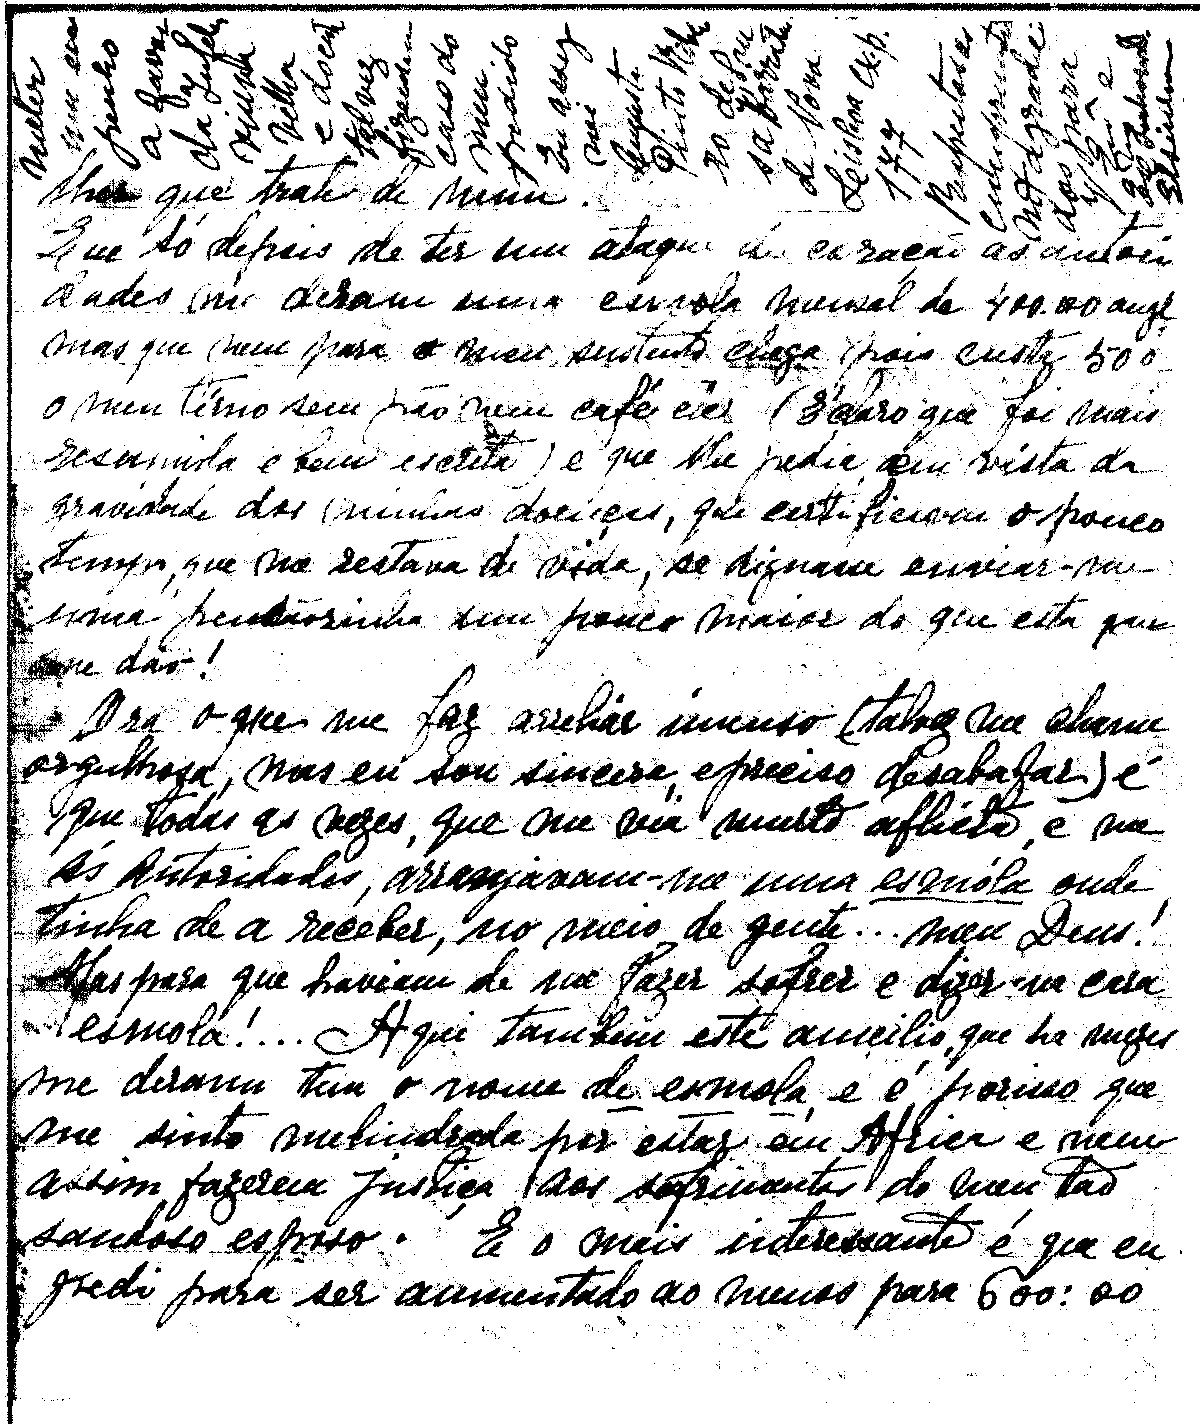 meter
um em
penho
a favor
da Infeliz
viuva
velha
e doente
talvez
fizessem
caso do
meu
pedido
Eu assez
nei
Augusta
Pinto
20 de
sa Barreto
de Nova
Lisboa Cx.p.
177
Respeitosos
cumprimentos
agrade
dos para
que trate de mim.
Que só depois de ter um ataque de coração as autori
dades me deram uma esmola mensal de 400.00 angl
mas que nem para o meu sustento chega pois custa 500
o meu termo sem pão nem café etc. que foi mais
resumida e bem escrita) e que lhe pedia em vista da
gravidade das minhas doenças, que certificavam o pouco
tempo, que me restava de vida, se dignasse enviar-me
uma pensãozinha um pouco maior do que esta que
me dão!
Ora o que me faz arreliar imenso (talvez me chame
orgulhosa, mas eu sou sincera, e preciso desabafar) é
que todas as vezes, que me via muito aflicta, e na
ás Autoridades, arranjavam-me uma esmóla onde
tinha de a receber, no meio de gente... meu Deus!
Mas para que haviam de me fazer sofrer e dizer na cara
esmola!... Aqui tambem este aucilio, que ha mezes
me deram tem o nome de esmola, e é porisso que
me sinto melindrada por estar em Africa e nem
assim fazerem Justiça aos sofrimentos do meu tão
saudoso esposo. E o mais interessante é que eu
pedi para ser aumentado ao menos para 600:00